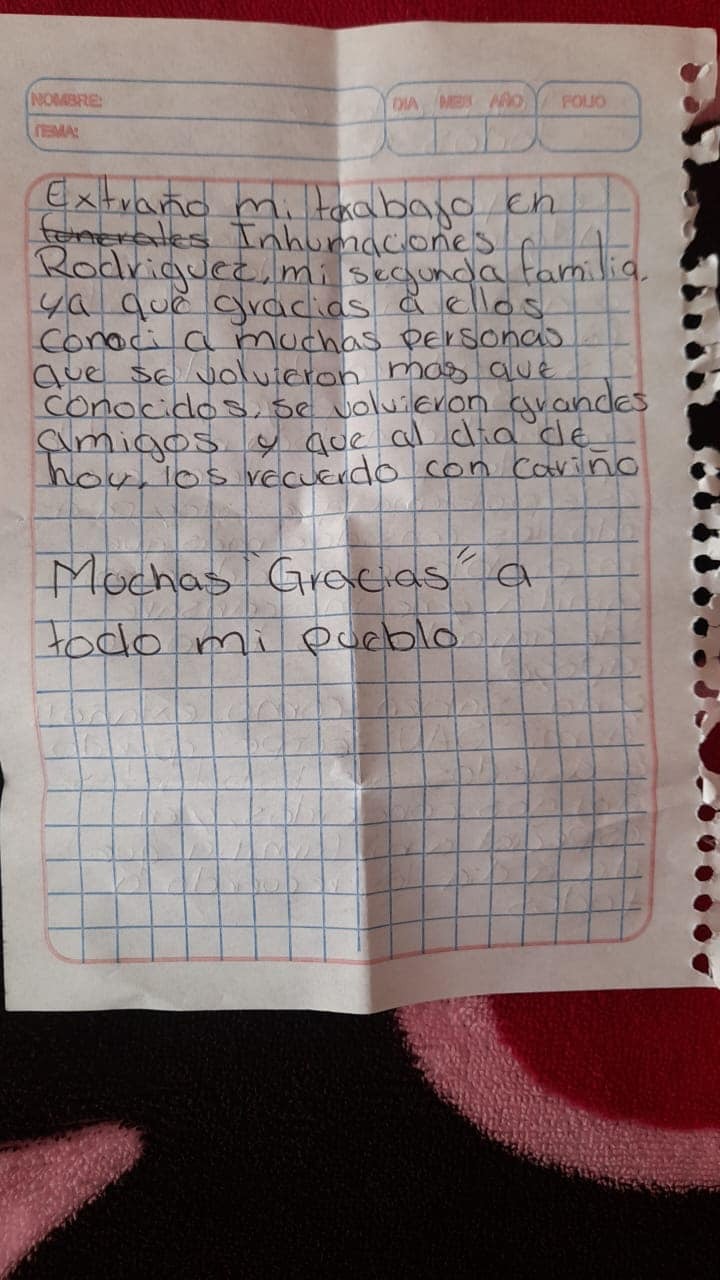 NOMBRE:
DIA MES AÑO FOLIO
TEMA:
Extraño mi trabajo en
funerales Inhumaciones
Rodriguez, mi segunda familia.
ya que gracias a ellos
conoci a muchas personas
que se volvieron mas que
conocidos, se volvieron grandes
amigos y que al dia de
hoy, los recuerdo con cariño
Muchas "Gracias" a
todo mi pueblo